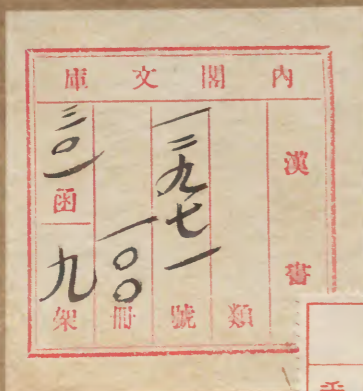 內閣文庫
漢書
類
一三九七一號
一〇〇冊
三〇一函
九架
番